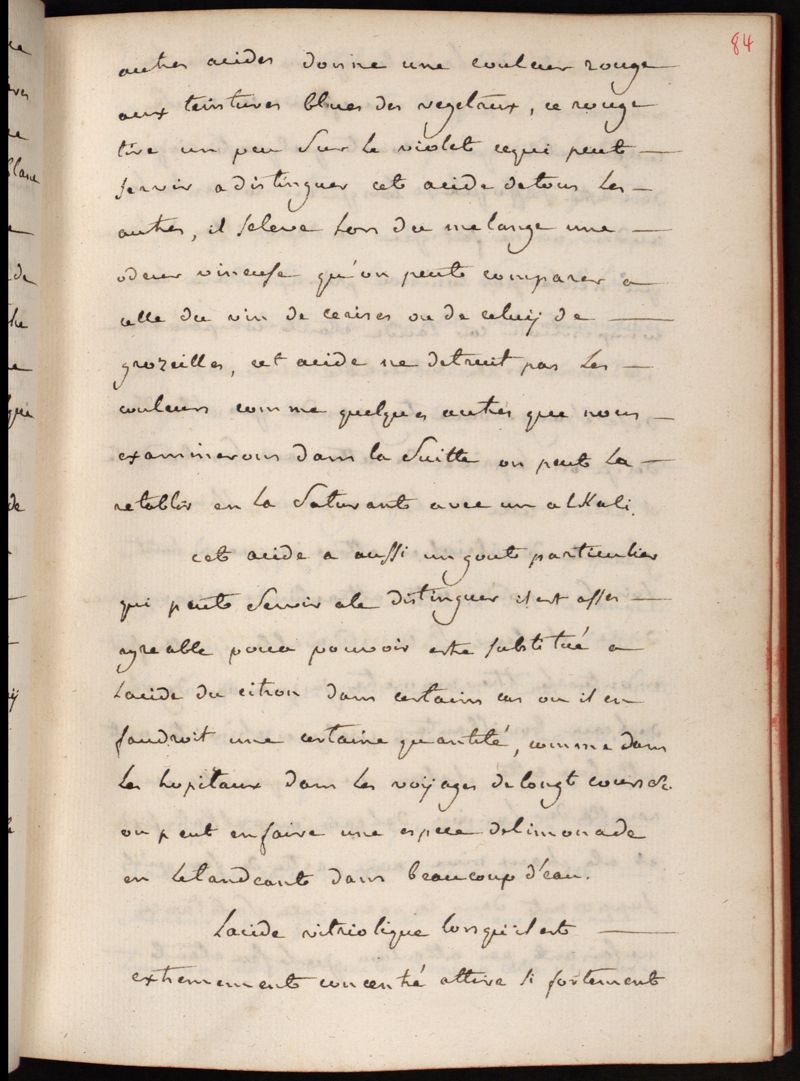 84
autres acides donne une couleur rouge
aux teintures blues des vegetaux, ce rouge
tire un peu sur le violet cequi peut
servir a distinguer cet acide detous les
autres, il seleve lors du melange une
odeur vineuse qu'on peut comparer a
celle du vin de cerises ou de celuÿ de
grozeilles, cet acide ne detruit pas les
couleurs comme quelques autres que nous
examinerons dans la suitte on peut la
retablir en la saturant avec un alkali.
cet acide a aussi un gout particulier
qui peut servir ale distinguer il est asses
agreable pour pouvoir estre substitué a
lacide du citron dans certains cas ou il en
faudroit une certaine quantité, comme dans
les hopitaux dans les voÿages delongt cours &c.
on peut enfaire une espece delimonade
en letandeant dans beaucoup d'eau.
Lacide vitriolique lorsqu'il est
extremement concentré attire si fortement